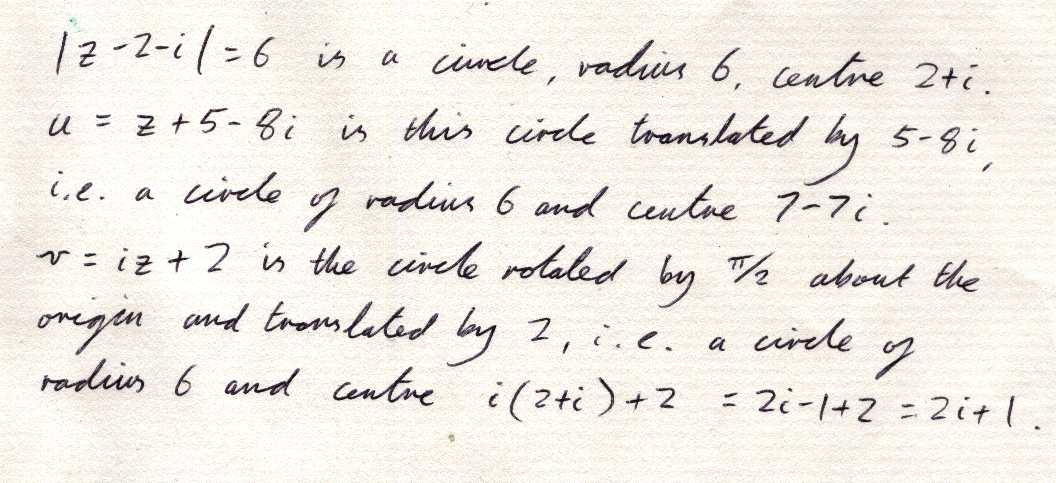 |z-2-i|=6 is a circle, radius 6, centre 2+i.
u = z+5-8i is this circle translated by 5-8i,
i.e. a circle of radius 6 and centre 7-7i.
v = iz + 2 is the circle rotated by π/2 about the
origin and translated by 2, i.e. a circle of
radius 6 and centre i(2+i)+2 = 2i-1+2 = 2i+1.